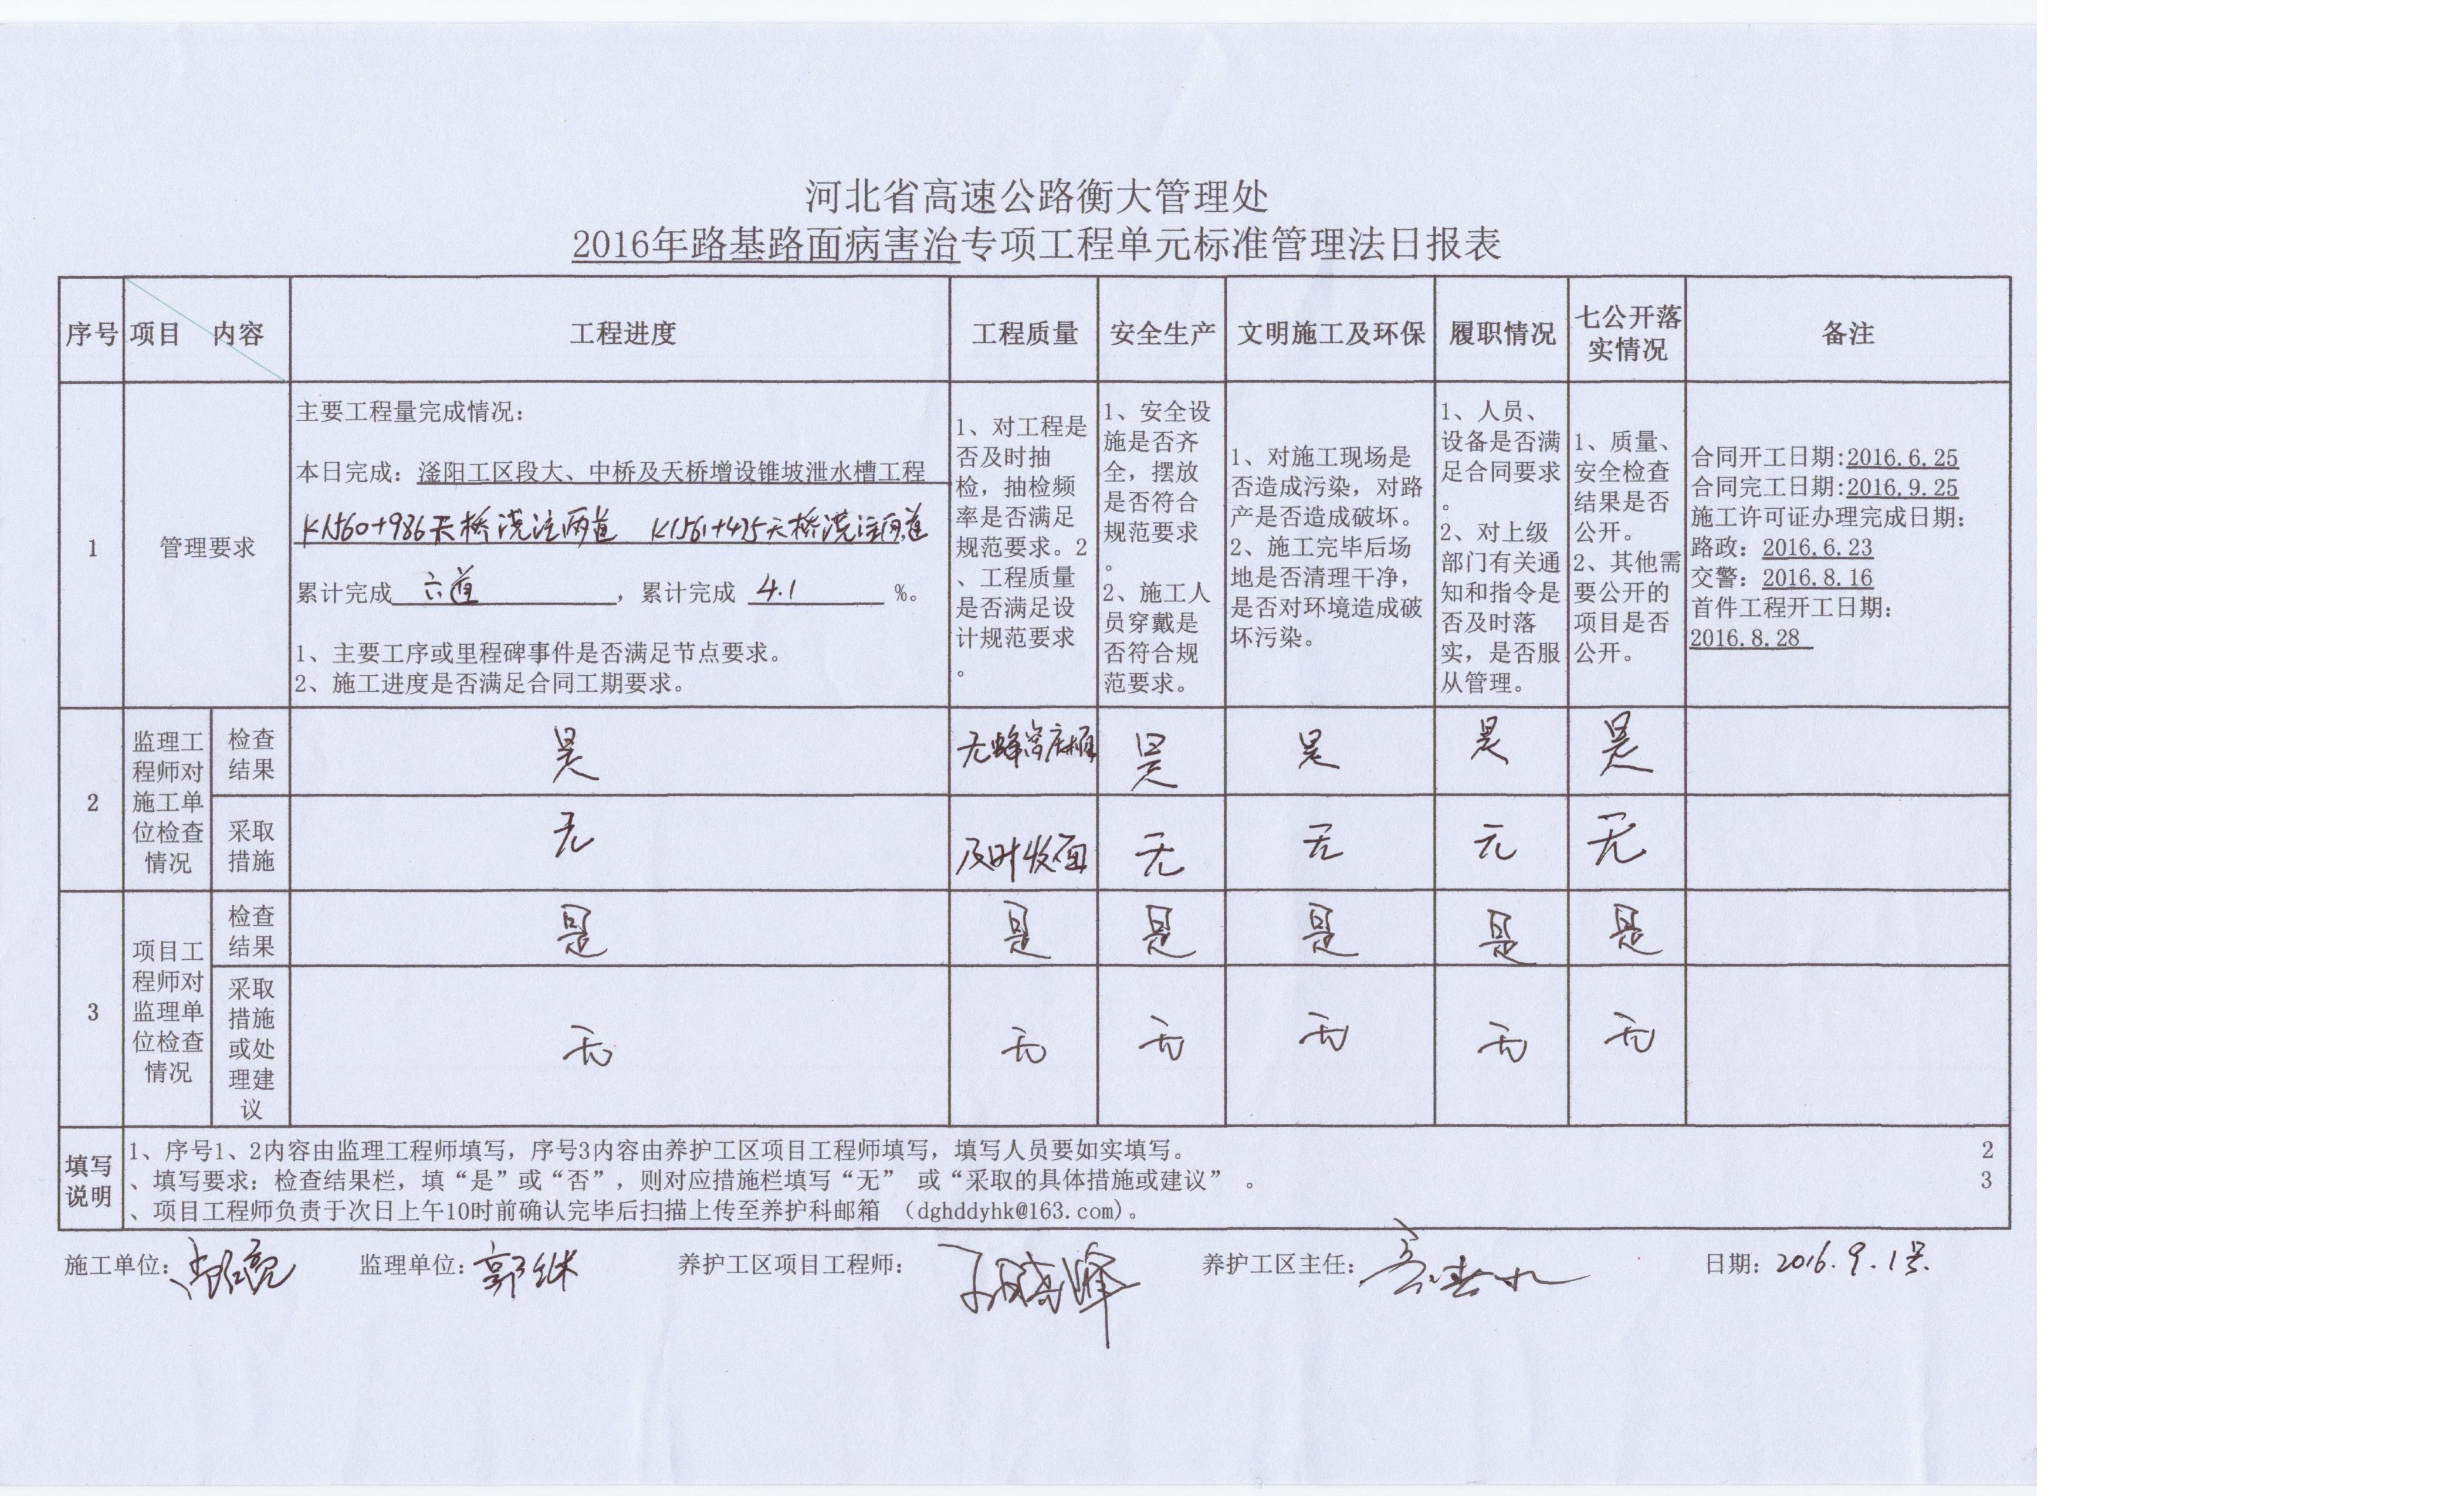 河北省高速公路衡大管理处
2016年路基路面病害治专项工程单元标准管理法日报表
序号 项目 内容 工程进度 工程质量 安全生产 文明施工及环保 履职情况 七公开落
实情况 备注
1 管理要求
主要工程量完成情况：
本日完成：滏阳工区段大、中桥及天桥增设锥坡泄水槽工程
K1560+986天桥浇注两道 K1561+475天桥浇注两道
累计完成 六道 ，累计完成 4.1 %。
1、主要工序或里程碑事件是否满足节点要求。
2、施工进度是否满足合同工期要求。
1、对工程是
否及时抽
检，抽检频
率是否满足
规范要求。2
、工程质量
是否满足设
计规范要求
。
1、安全设
施是否齐
全，摆放
是否符合
规范要求
。
2、施工人
员穿戴是
否符合规
范要求。
1、对施工现场是
否造成污染，对路
产是否造成破坏。
2、施工完毕后场
地是否清理干净，
是否对环境造成破
坏污染。
1、人员、
设备是否满
足合同要求
。
2、对上级
部门有关通
知和指令是
否及时落
实，是否服
从管理。
1、质量、
安全检查
结果是否
公开。
2、其他需
要公开的
项目是否
公开。
合同开工日期:2016.6.25
合同完工日期:2016.9.25
施工许可证办理完成日期：
路政：2016.6.23
交警：2016.8.16
首件工程开工日期：
2016.8.28
2
监理工
程师对
施工单
位检查
情况
检查
结果
是 无蜂窝麻面 是 是 是 是
采取
措施
无 及时收面 无 无 无 无
3
项目工
程师对
监理单
位检查
情况
检查
结果
是 是 是 是 是 是
采取
措施
或处
理建
议
无 无 无 无 无 无
填写
说明
1、序号1、2内容由监理工程师填写，序号3内容由养护工区项目工程师填写，填写人员要如实填写。 2
、填写要求：检查结果栏，填“是”或“否”，则对应措施栏填写“无” 或“采取的具体措施或建议” 。 3
、项目工程师负责于次日上午10时前确认完毕后扫描上传至养护科邮箱 （dghddyhk@163.com)。
施工单位： 监理单位：郭继 养护工区项目工程师： 养护工区主任： 日期：2016.9.1号.